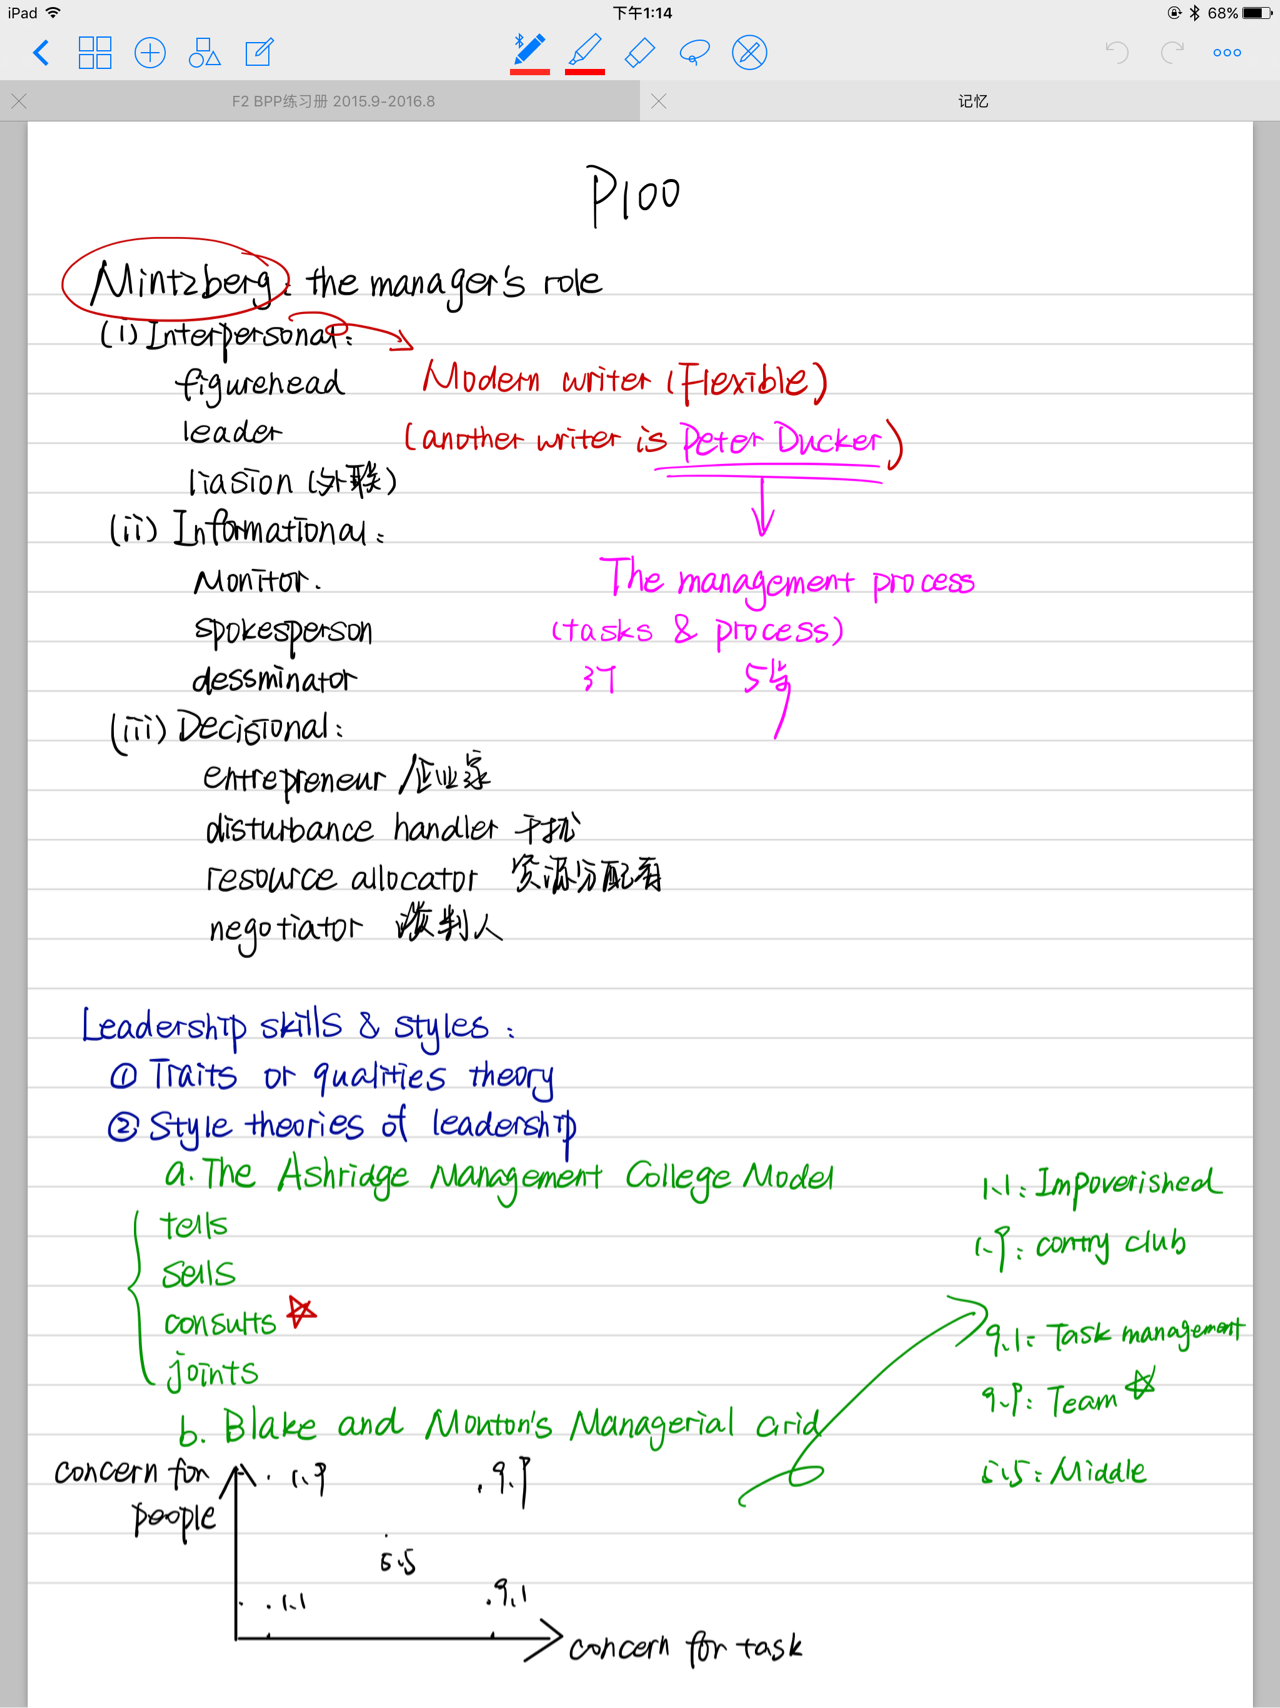 iPad
下午1:14
68%
F2 BPP练习册 2015.9-2016.8
记忆
P100
Mintzberg: the manager's role
(i) Interpersonal:
figurehead
Modern writer (Flexible)
leader
(another writer is Peter Ducker)
liasion (外联)
(ii) Informational:
Monitor.
The management process
spokesperson
(tasks & process)
dessminator
3个 5步
(iii) Decisional:
entrepreneur 企业家
disturbance handler 干扰
resource allocator 资源分配者
negotiator 谈判人
Leadership skills & styles:
① Traits or qualities theory
② Style theories of leadership
a. The Ashridge Management College Model
tells
sells
consults
joints
1.1: Impoverished
1.9: contry club
9.1: Task management
9.9: Team
5.5: Middle
b. Blake and Monton's Managerial Grid
concern for
people
1.9
9.9
5.5
1.1
9.1
concern for task